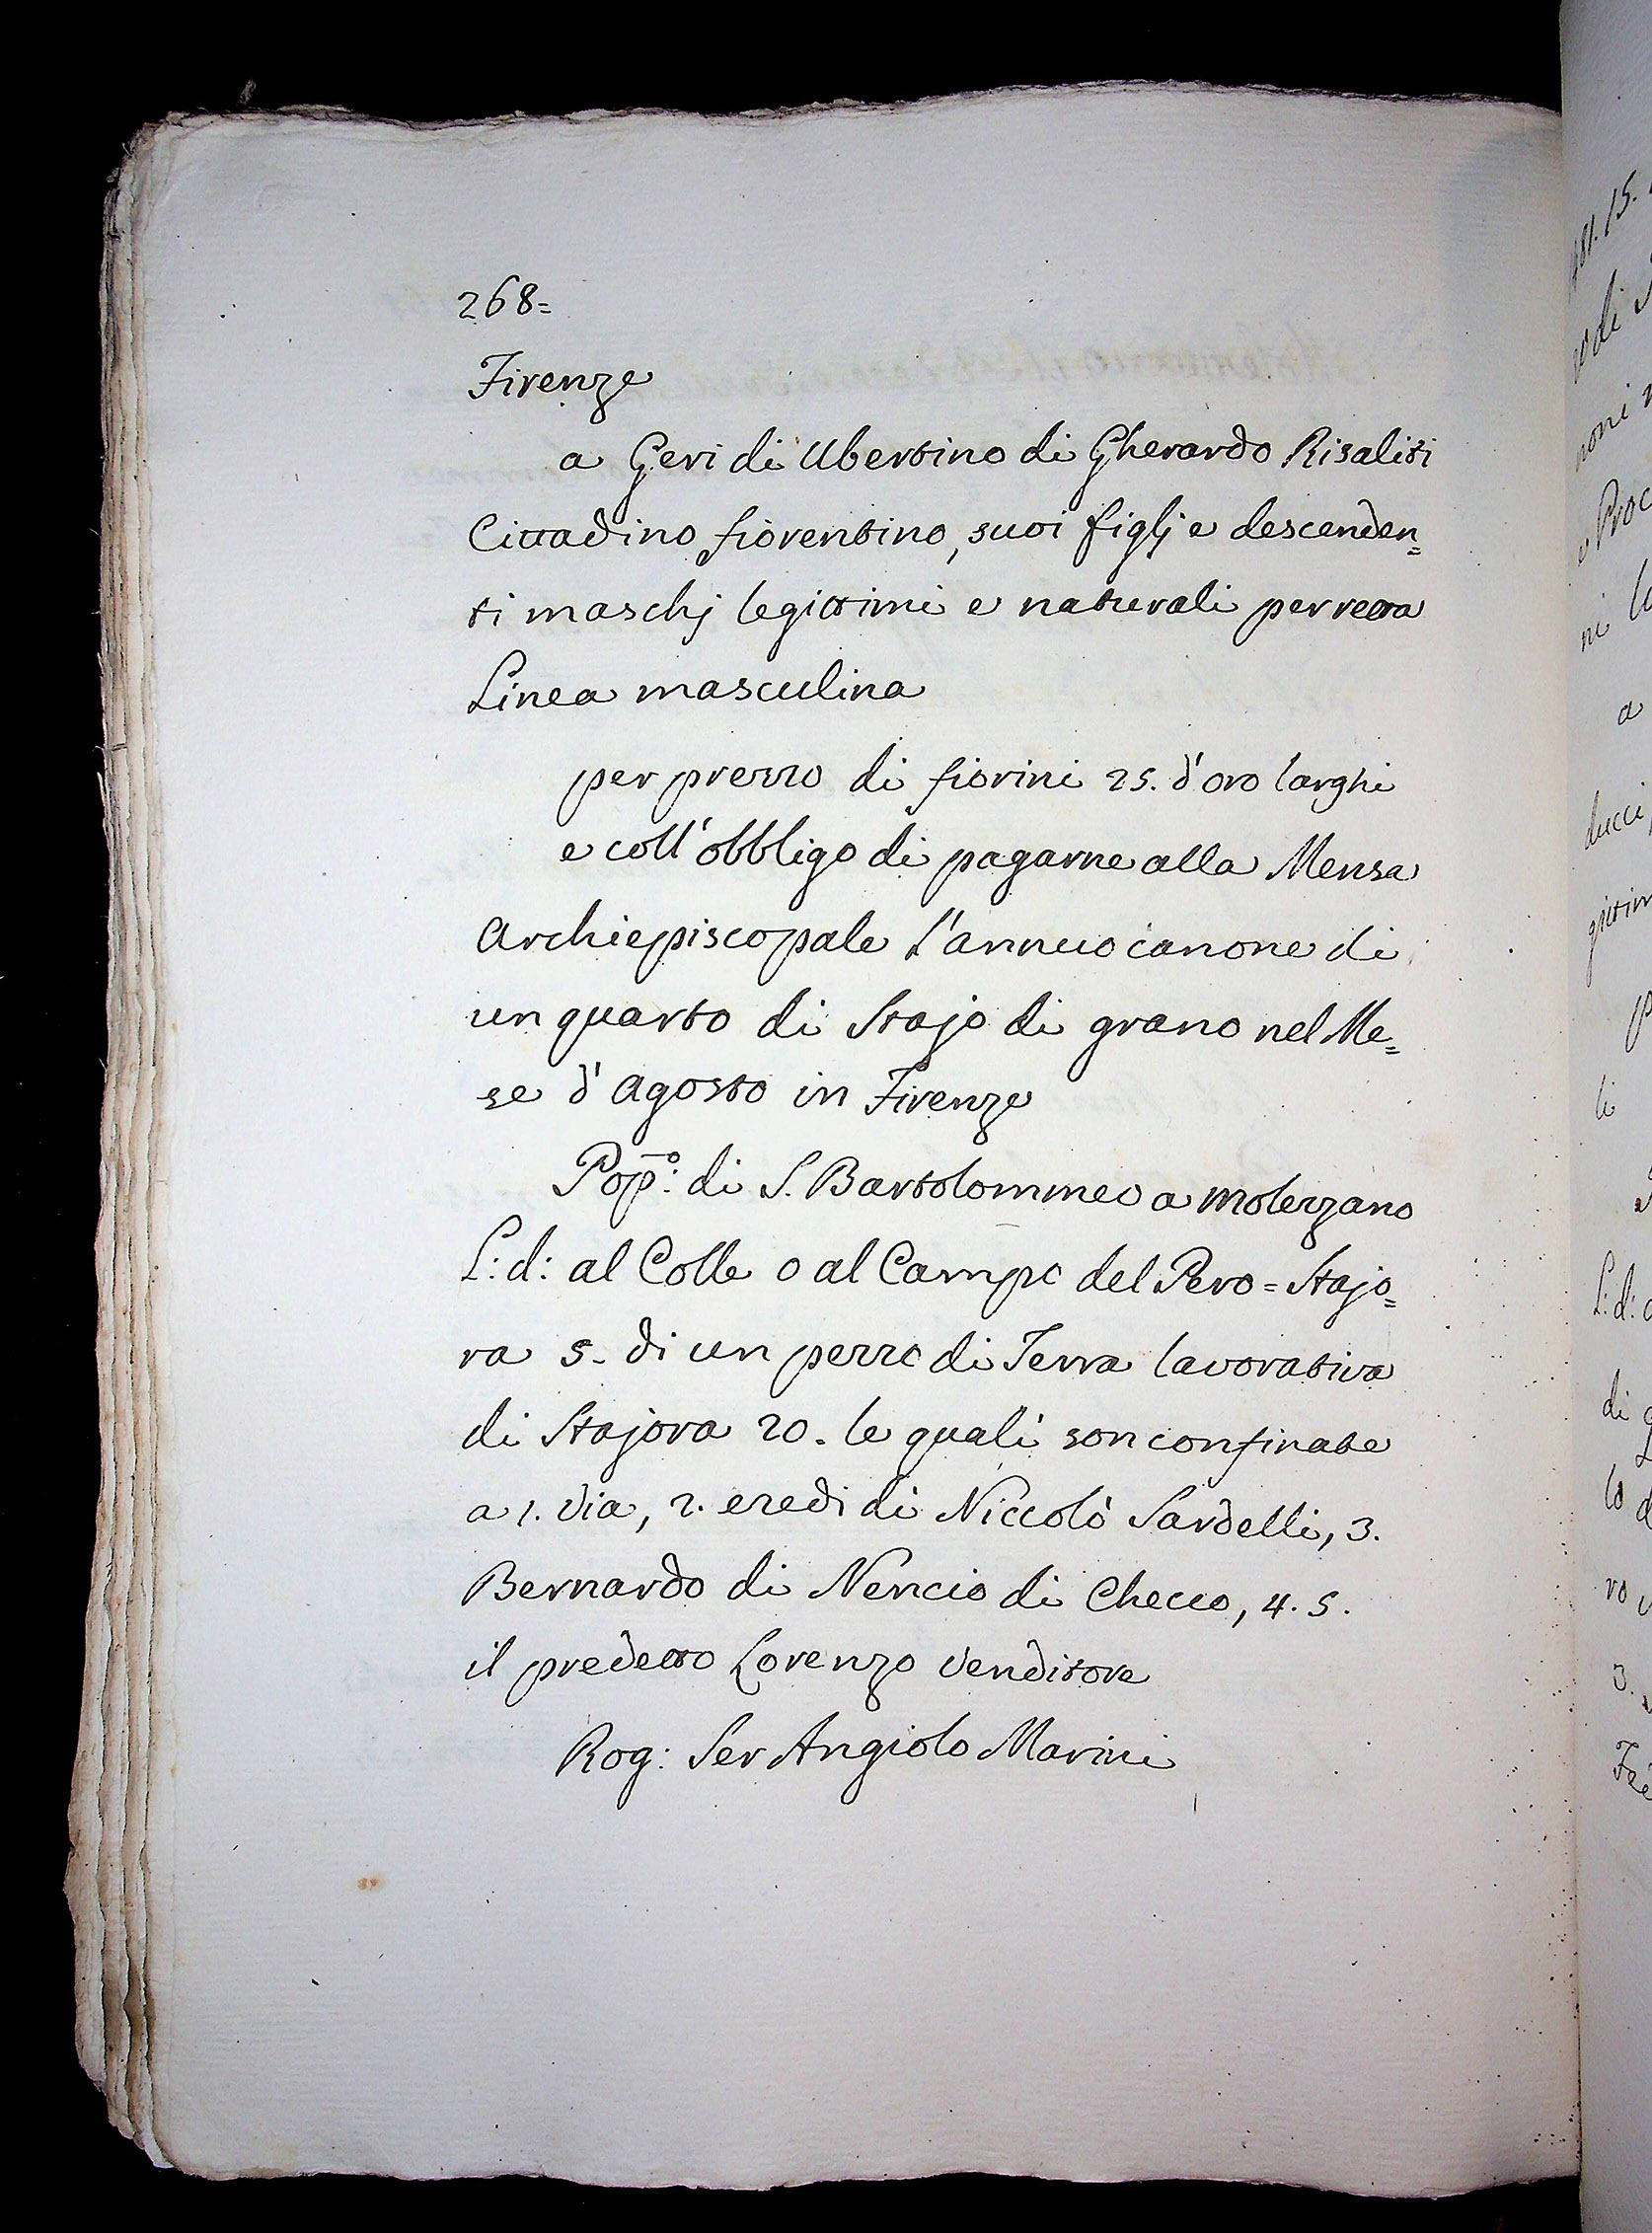 268=
Firenze
a Geri di Ubertino di Gherardo Risaliti
Cittadino fiorentino, suoi figlj e descenden=
ti maschj legittimi e naturali per retta
Linea masculina
per prezzo di fiorini 25. d'oro larghi
e coll'obbligo di pagarne alla Mensa
Archiepiscopale l'annuo canone di
un quarto di Stajo di grano nel Me=
se d'Agosto in Firenze
Pop.º: di S. Bartolommeo a Molezzano
L: d: al Colle o al Campo del Pero = Stajo=
ra 5. di un pezzo di Terra lavorativa
di Stajora 20. le quali son confinate
a 1. Via, 2. eredi di Niccolò Sardelli, 3.
Bernardo di Nencio di Checco, 4. 5.
il predetto Lorenzo Venditore
Rog: Ser Angiolo Marini